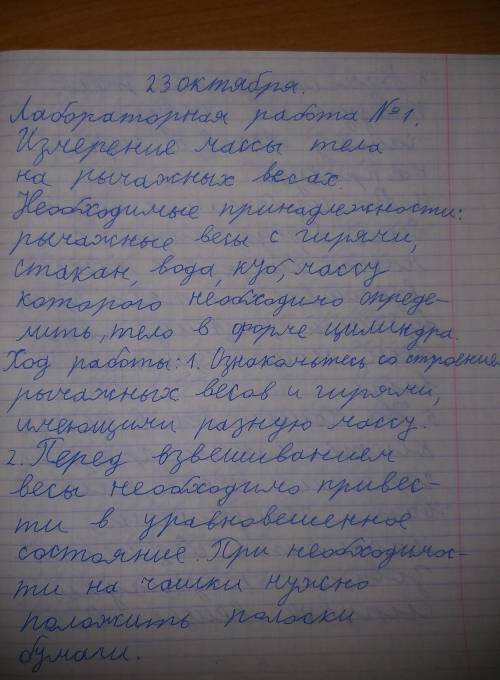 23 октября.
Лабораторная работа №1.
Измерение массы тела
на рычажных весах.
Необходимые принадлежности:
рычажные весы с гирями,
стакан, вода, куб, массу
которого необходимо опреде-
лить, тело в форме цилиндра.
Ход работы: 1. Ознакомьтесь со строением
рычажных весов и гирями,
имеющими разную массу.
2. Перед взвешиванием
весы необходимо привес-
ти в уравновешенное
состояние. При необходимос-
ти на чашки нужно
положить полоски
бумаги.